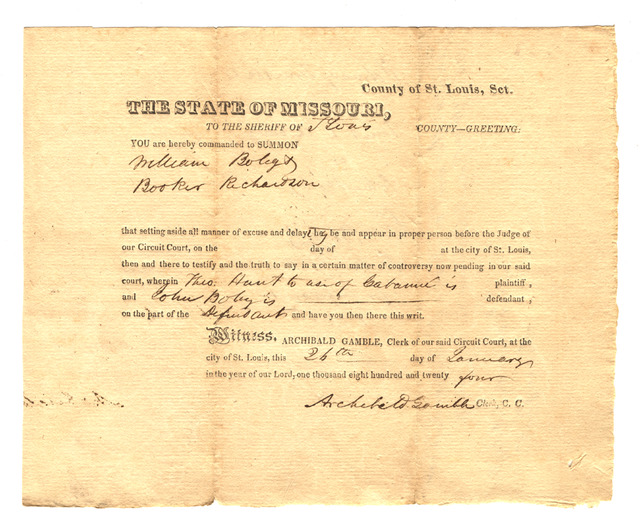 County of St. Louis, Sct.
THE STATE OF MISSOURI,
TO THE SHERIFF OF St Louis COUNTY—GREETING:
YOU are hereby commanded to SUMMON
William
Booker Richardson
that setting aside all manner of excuse and delay, they be and appear in proper person before the Judge of
our Circuit Court, on the day of at the city of St. Louis,
then and there to testify and the truth to say in a certain matter of controversy now pending in our said
court, wherein Theo. Hunt to use of Cabanne is plaintiff,
and John is defendant,
on the part of the Defendant and have you then there this writ.
Witness, ARCHIBALD GAMBLE, Clerk of our said Circuit Court, at the
city of St. Louis, this 26th day of January
in the year of our Lord, one thousand eight hundred and twenty four
Archibald Gamble Clerk, C. C.